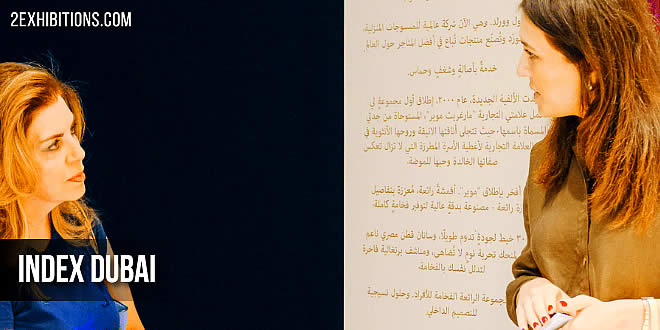 2EXHIBITIONS.COM
INDEX DUBAI
ول وورلد. وهي الآن شركة عالمية للمنسوجات المنزلية،
ورّد وتُصنّع منتجات تُباع في أفضل المتاجر حول العالم
خدمةً بأصالةٍ وشغفٍ وحماس.
الألفية الجديدة، عام ٢٠٠٠، إطلاق أول مجموعةٍ في
علامتي التجارية "مارغريت موير"، المستوحاة من جدتي
المسماة باسمها، حيث تتجلى أناقتها الأنيقة وروحها الأنثوية في
العلامة التجارية لأغطية الأسرة المطرزة التي لا تزال تعكس
صفاتها الخالدة وحبها للموضة.
أفخر بإطلاق "موير"، أقمشةٌ رائعة، مُعززة بتفاصيل
رائعة - مصنوعة بدقةٍ عالية لتوفير فخامةٍ كاملة.
٣٠ خيط لجودة تدوم طويلًا، وساتان قطن مصري ناعم
لمنحك تجربة نومٍ لا تُضاهى، ومناشف برتغالية فاخرة
لتدلل نفسك بالفخامة.
مجموعة الرائعة الفخامة للأفراد، وحلول نسيجية
للتصميم الداخلي.